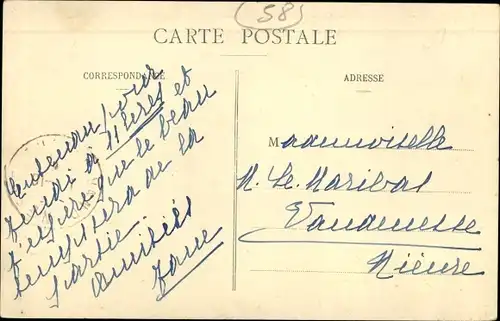 58
CARTE POSTALE
CORRESPONDANCE
Entendu pour
jeudi à 11 hres et
j'espère que le beau
temps sera de la
partie.
Amitiés
ADRESSE
Mademoiselle
M. Le Maribal
Vandenesse
Nièvre